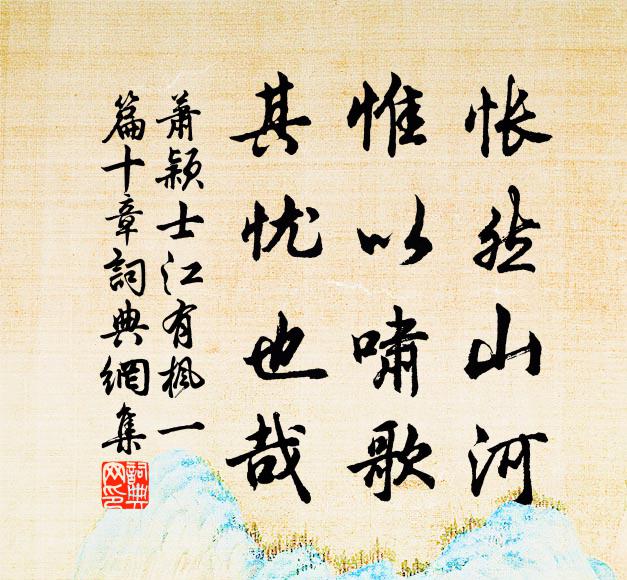 怅然山河
惟以啸歌
其忧也哉
萧颖士江有枫一
篇十章詞典網集
詞典網印